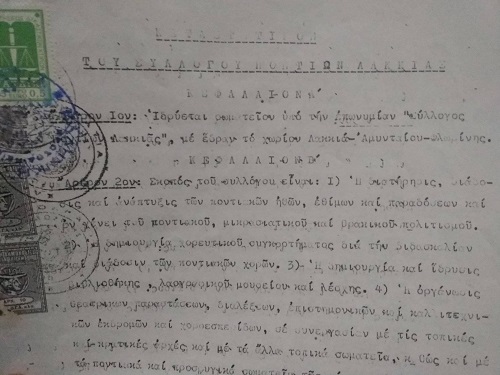 ΚΑΤΑΣΤΑΤΙΚΟΝ
ΤΟΥ ΣΥΛΛΟΓΟΥ ΠΟΝΤΙΩΝ ΛΑΚΚΙΑΣ
ΚΕΦΑΛΑΙΟΝ
Ἄρθρον 1ον: Ἱδρύεται σωματεῖον ὑπό τήν ἐπωνυμίαν "Σύλλογος
Λακκιᾶς", μέ ἕδραν τό χωρίον Λακκιά-Ἀμυνταίου-Φλωρίνης.
ΚΕΦΑΛΑΙΟΝ
Ἄρθρον 2ον: Σκοπός τοῦ συλλόγου εἶναι: 1) Ἡ διατήρησις, διάσω-
σις καί ἀνάπτυξις τῶν ποντιακῶν ἠθῶν, ἐθίμων καί παραδόσεων καί
ἐν γένει τοῦ ποντιακοῦ, μικρασιατικοῦ καί θρακικοῦ πολιτισμοῦ.
2) Ἡ δημιουργία χορευτικοῦ συγκροτήματος διά τήν διδασκαλίαν
καί διάδοσιν τῶν ποντιακῶν χορῶν. 3) Ἡ δημιουργία καί ἵδρυσις
βιβλιοθήκης, λαογραφικοῦ μουσείου καί λέσχης. 4) Ἡ ὀργάνωσις
θεατρικῶν παραστάσεων, διαλέξεων, ἐπιστημονικῶν καί καλλιτεχνι-
κῶν ἐκδρομῶν καί χοροεσπερίδων, σέ συνεργασίαν μέ τίς τοπικές
καί κρατικές ἀρχές καί μέ τά ἄλλα τοπικά σωματεῖα, καθώς καί μέ
τά ποντιακά καί προσφυγικά σωματεῖα